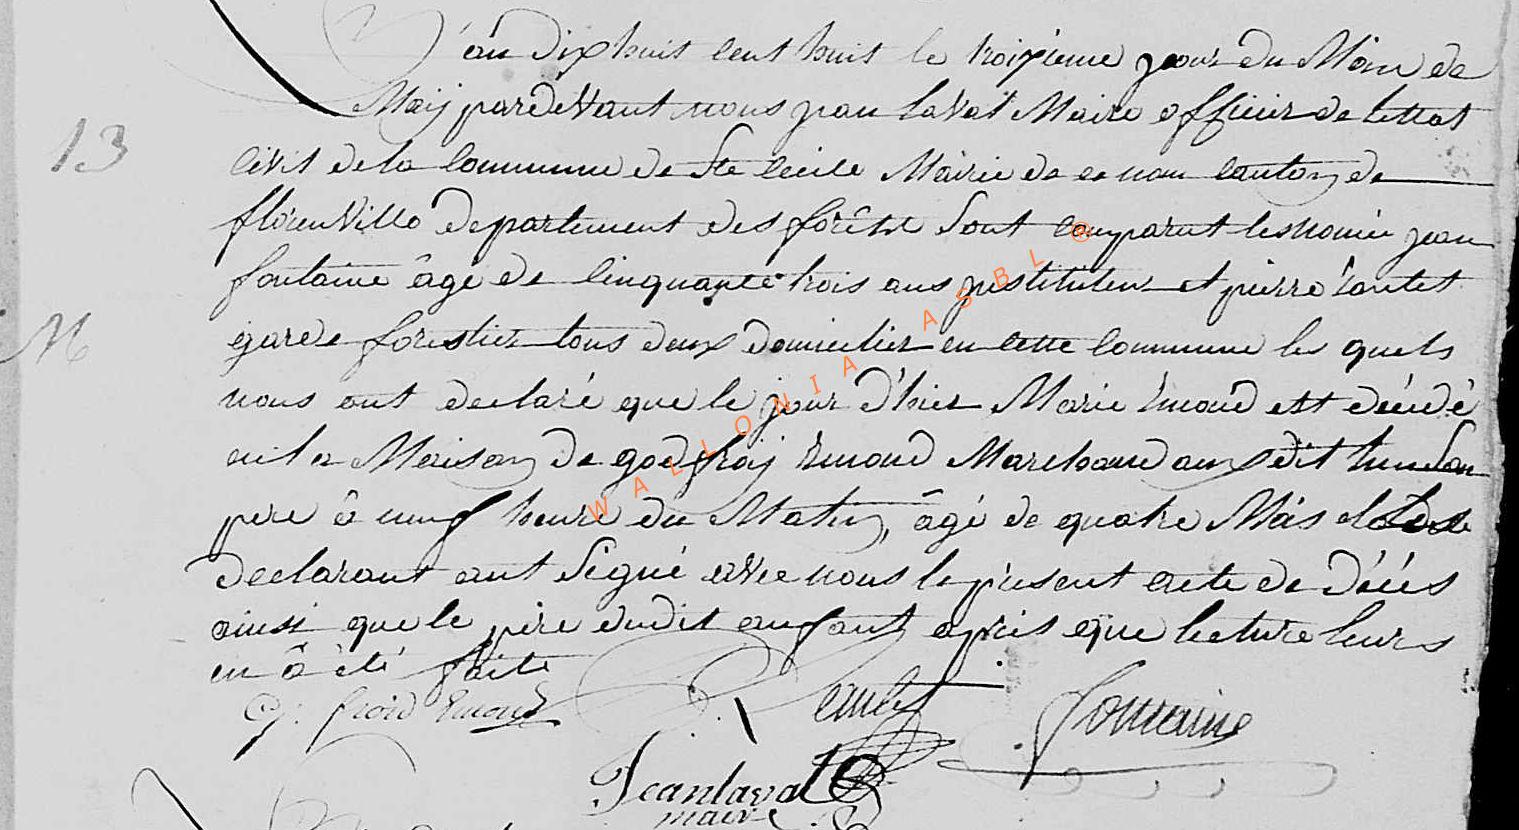 L'an dix huit cent huit le troixieme jour du Mois de
13
Maij pardevant nous jean Laval Maire officier de lettat
civil de la commune de Ste Cecile Mairie de ce nom canton de
florenville departement des forêts sont comparut les només jean
fontaine âgé de cinquante trois ans jnstituteur et pierre
garde forestier tous deux domicilier en cette commune les quels
M
nous ont declaré que le jour d'hier Marie Emond est décédé
en la Maison de godfroij Emond Marchand audit lieu son
pere â neuf heure du Matin, âgé de quatre Mois
declarant ont signé avec nous le présent acte de décés
ainsi que le pére dudit anfant aprés que lecture leurs
en â été faite
G: froid Emond
fontaine
Jean laval
maire
WALLONIA ASBL ®